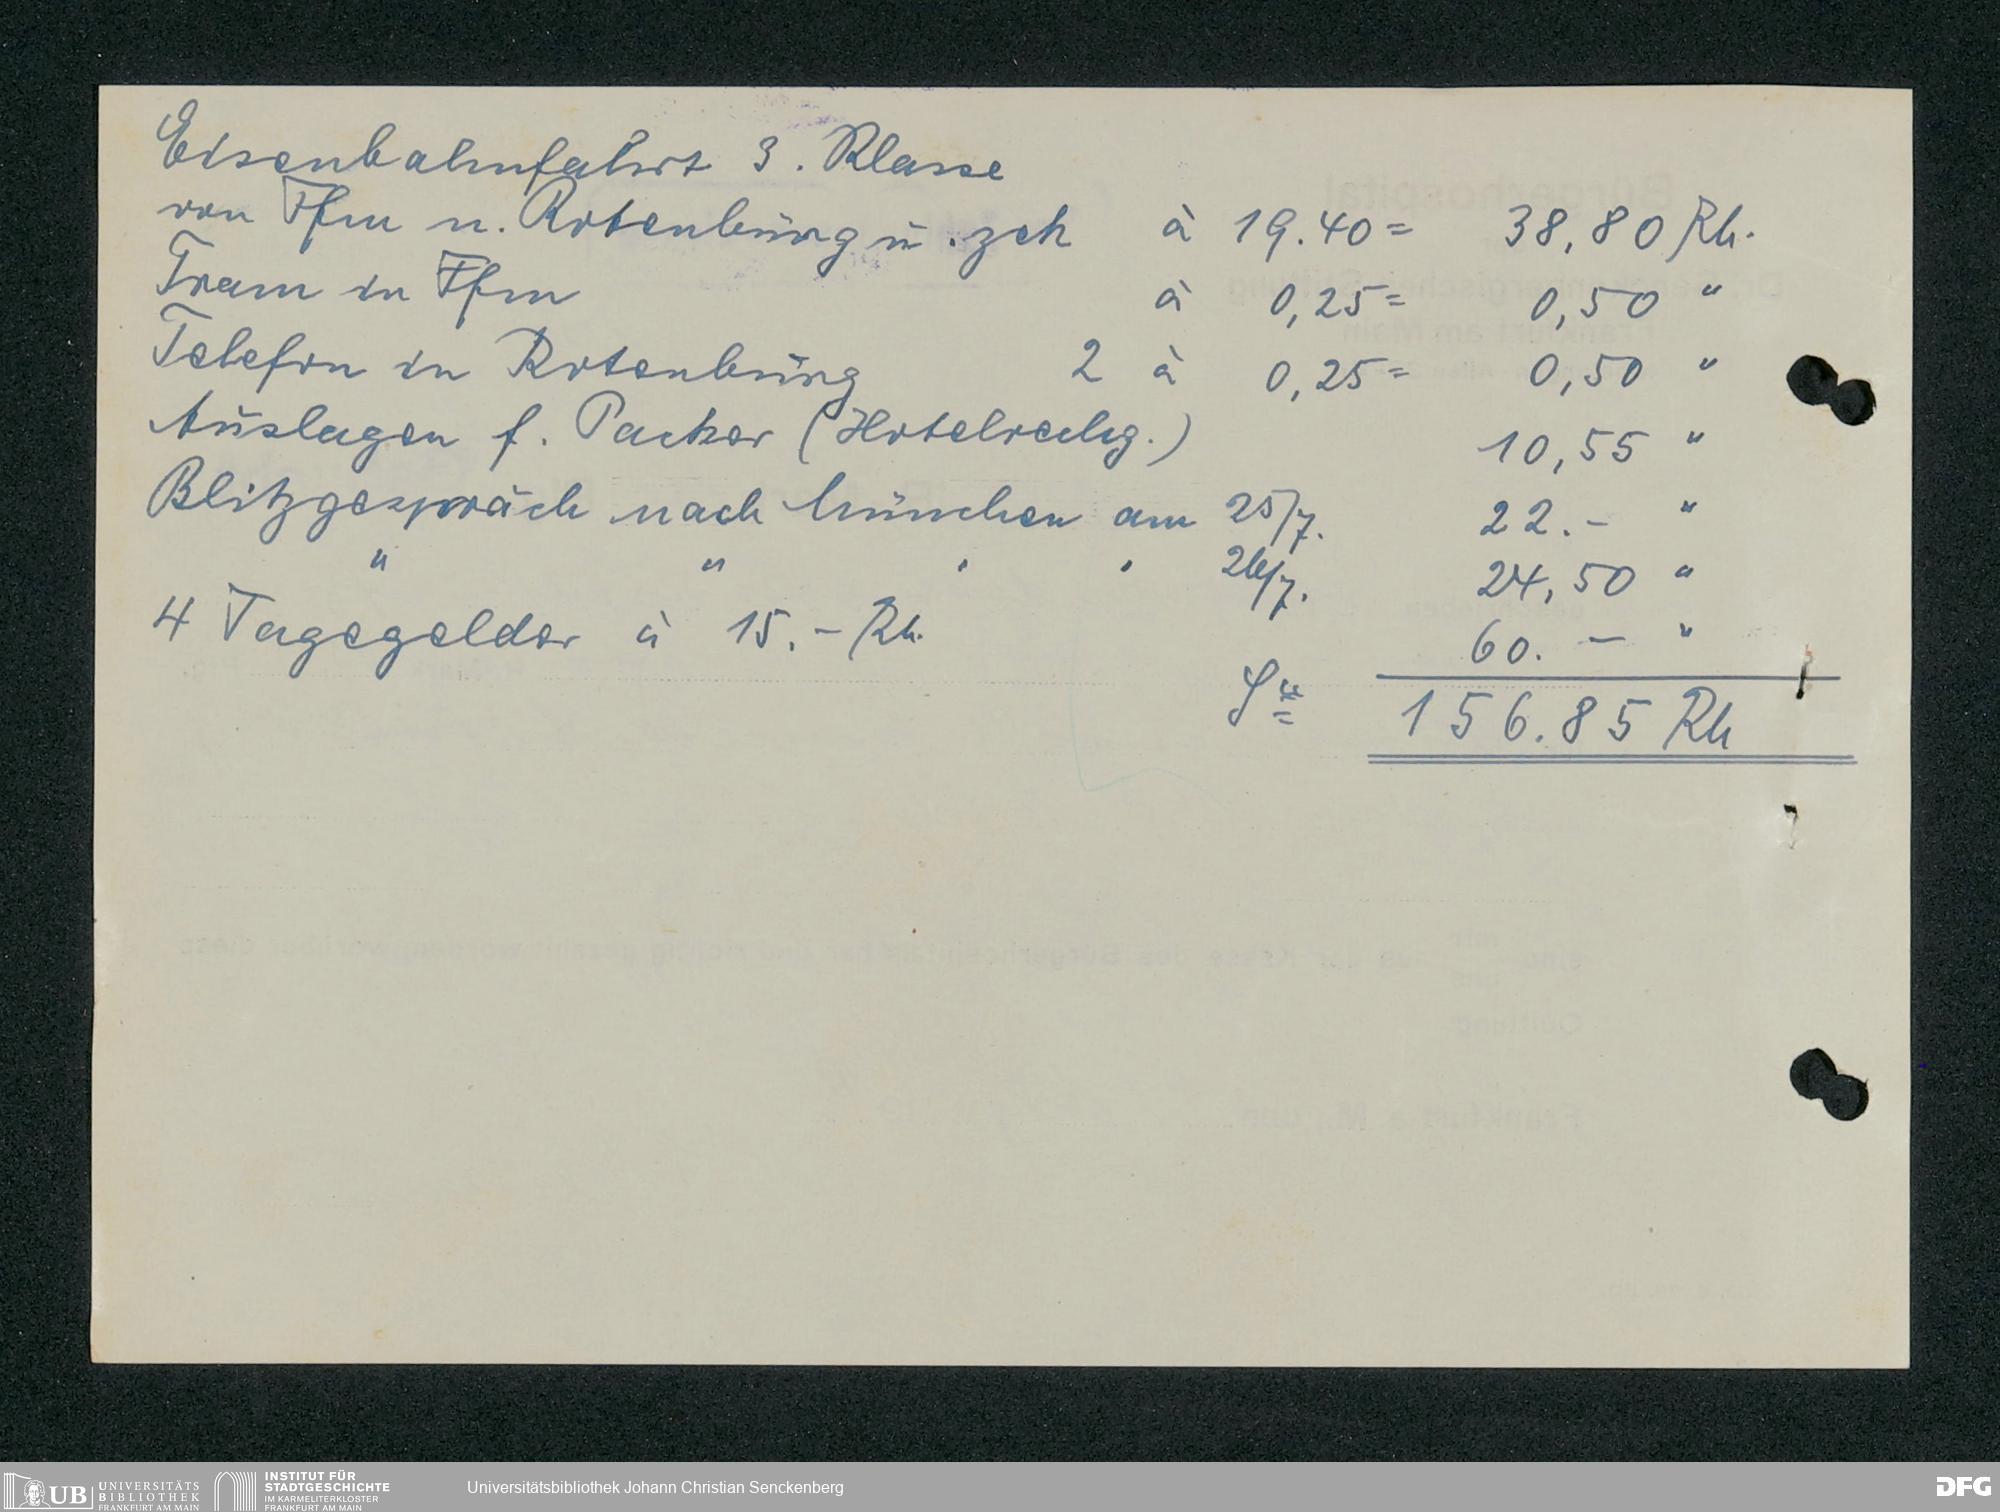 Eisenbahnfahrt 3. Klasse
von Ffm n. Rotenburg u. zck à 19.40 = 38,80 Rh.
Tram in Ffm à 0,25 = 0,50 "
Telefon in Rotenburg 2 à 0,25 = 0,50 "
Auslagen f. Packer (Hotelrechg.) 10,55 "
Blitzgespräch nach München am 25/7. 22.- "
" " " " 26/7. 24,50 "
4 Tagegelder à 15.- Rh. 60.- "
156.85 Rh
Bürgerhospital
Frankfurt am Main
sind mir uns aus der Kasse des Bürgerhospitals bar und richtig gezahlt worden, worüber diese
Quittung
Frankfurt a. M., den
UB UNIVERSITÄTS
BIBLIOTHEK
FRANKFURT AM MAIN
INSTITUT FÜR
STADTGESCHICHTE
IM KARMELITERKLOSTER
FRANKFURT AM MAIN
Universitätsbibliothek Johann Christian Senckenberg
DFG